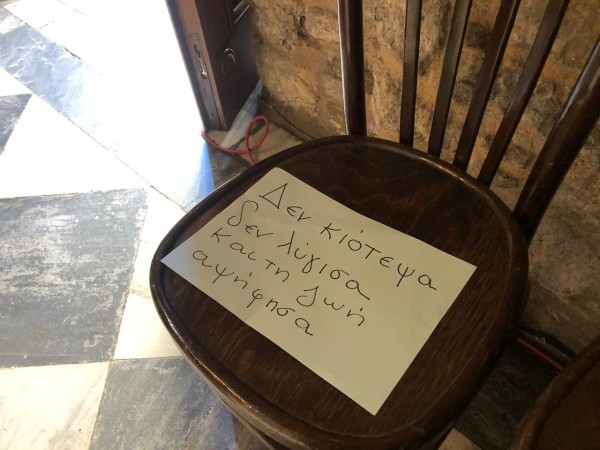 Δεν κιότεψα
δεν λύγισα
και τη ζωή
αψήφησα